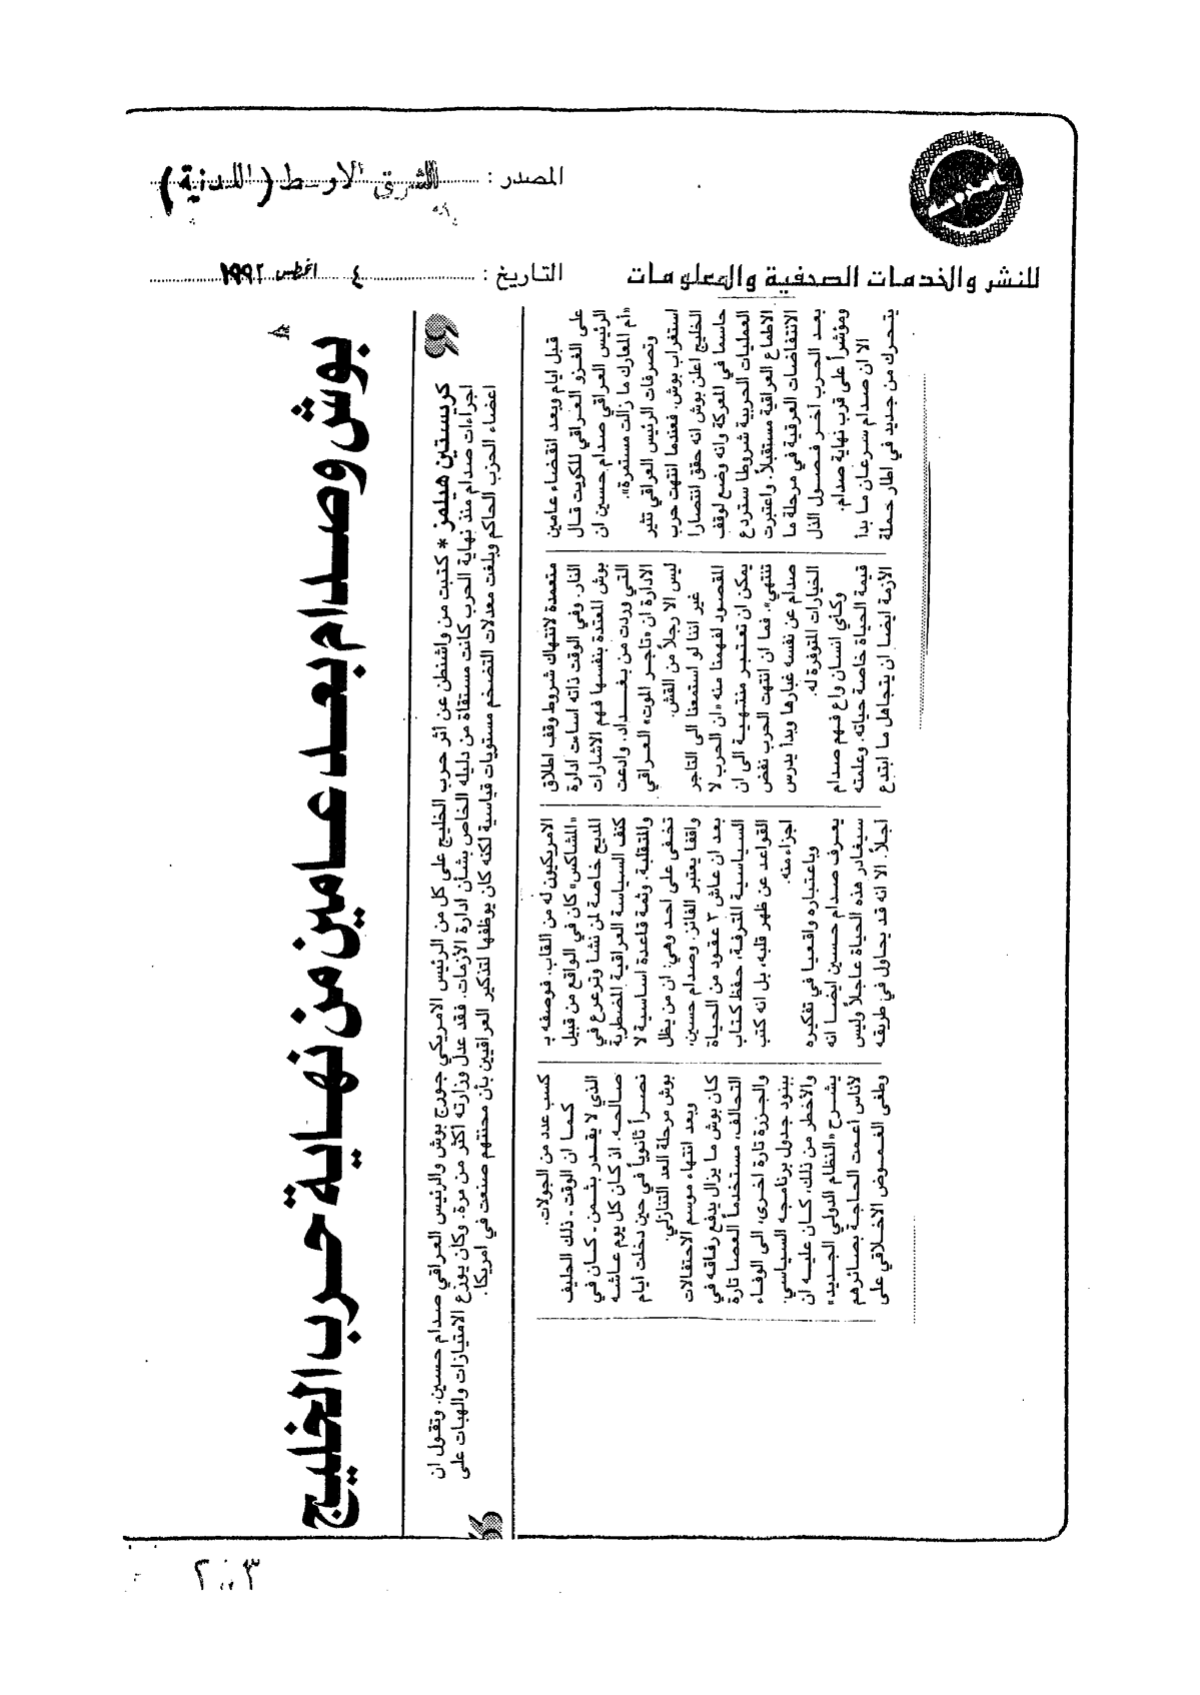 المصدر : الشرق الأوسط (اللندنية)
للنشر والخدمات الصحفية والمعلومات
التاريخ : ٤ اغسطس ١٩٩٢
بوش وصدام بعد عامين من نهاية حرب الخليج
كريستين هيلمز * كتبت من واشنطن عن اثر حرب الخليج على كل من الرئيس الامريكي جورج بوش والرئيس العراقي صدام حسين. وتقول ان
اجراءات صدام منذ نهاية الحرب كانت مستقاة من دليله الخاص بشأن ادارة الأزمات. فقد عدل وزارته اكثر من مرة. وكان يوزع الامتيازات والهبات على
اعضاء الحزب الحاكم وبلغت معدلات التضخم مستويات قياسية لكنه كان يوظفها لتذكير العراقيين بأن محنتهم صنعت في امريكا.
قبل ايام وبعد انقضاء عامين
على الغزو العراقي للكويت قال
الرئيس العراقي صدام حسين ان
«أم المعارك ما زالت مستمرة».
وتصرفات الرئيس العراقي تثير
استغراب بوش. فعندما انتهت حرب
الخليج اعلن بوش انه حقق انتصارا
حاسما في المعركة وانه وضع لوقف
العمليات الحربية شروطا ستردع
الاطماع العراقية مستقبلاً. واعتبرت
الانتفاضات العرقية في مرحلة ما
بعد الحرب آخر فصول الذل
ومؤشراً على قرب نهاية صدام.
الا ان صدام سرعان ما بدأ
يتحرك من جديد في اطار حملة
متعمدة لانتهاك شروط وقف اطلاق
النار. وفي الوقت ذاته اساءت ادارة
بوش المعتدة بنفسها فهم الاشارات
التي وردت من بغداد. وادعت
الادارة ان «تاجر الموت» العراقي
ليس الا رجلاً من القش.
غير اننا لو استمعنا الى التاجر
المقصود لفهمنا منه «ان الحرب لا
يمكن ان تعتبر منتهية الى ان
تنتهي». فما ان انتهت الحرب نفض
صدام عن نفسه غبارها وبدأ يدرس
الخيارات المتوفرة له.
وكأي انسان واع فهم صدام
قيمة الحياة خاصة حياته. وعلمته
الأزمة ايضا ان يتجاهل ما ابتدع
الامريكيون له من القاب. فوصفه بـ
«المشاكس» كان في الواقع من قبيل
المديح خاصة لمن نشأ وترعرع في
كنف السياسة العراقية المضطربة
والمتقلبة. وثمة قاعدة اساسية لا
تخفى على احد وهي: ان من يظل
واقفا يعتبر الفائز. وصدام حسين،
بعد ان عاش ٣ عقود من الحياة
السياسية المترفة، حفظ كتاب
القواعد عن ظهر قلبه، بل انه كتب
اجزاء منه.
وباعتباره واقعيا في تفكيره
يعرف صدام حسين ايضا انه
سيغادر هذه الحياة عاجلاً وليس
آجلاً. الا انه قد يحاول في طريقه
كسب عدد من الجولات.
كما ان الوقت - ذلك الحليف
الذي لا يقدر بثمن - كان في
صالحه. اذ كان كل يوم عاشه
نصراً ثانوياً في حين دخلت ايام
بوش مرحلة العد التنازلي.
وبعد انتهاء موسم الاحتفالات
كان بوش ما يزال يدفع رفاقه في
التحالف، مستخدماً العصا تارة
والجزرة تارة اخرى، الى الوفاء
ببنود جدول برنامجه السياسي.
والأخطر من ذلك، كان عليه ان
يشرح «النظام الدولي الجديد»
لأناس أعمت الحاجة بصائرهم
وطغى الغموض الاخلاقي على